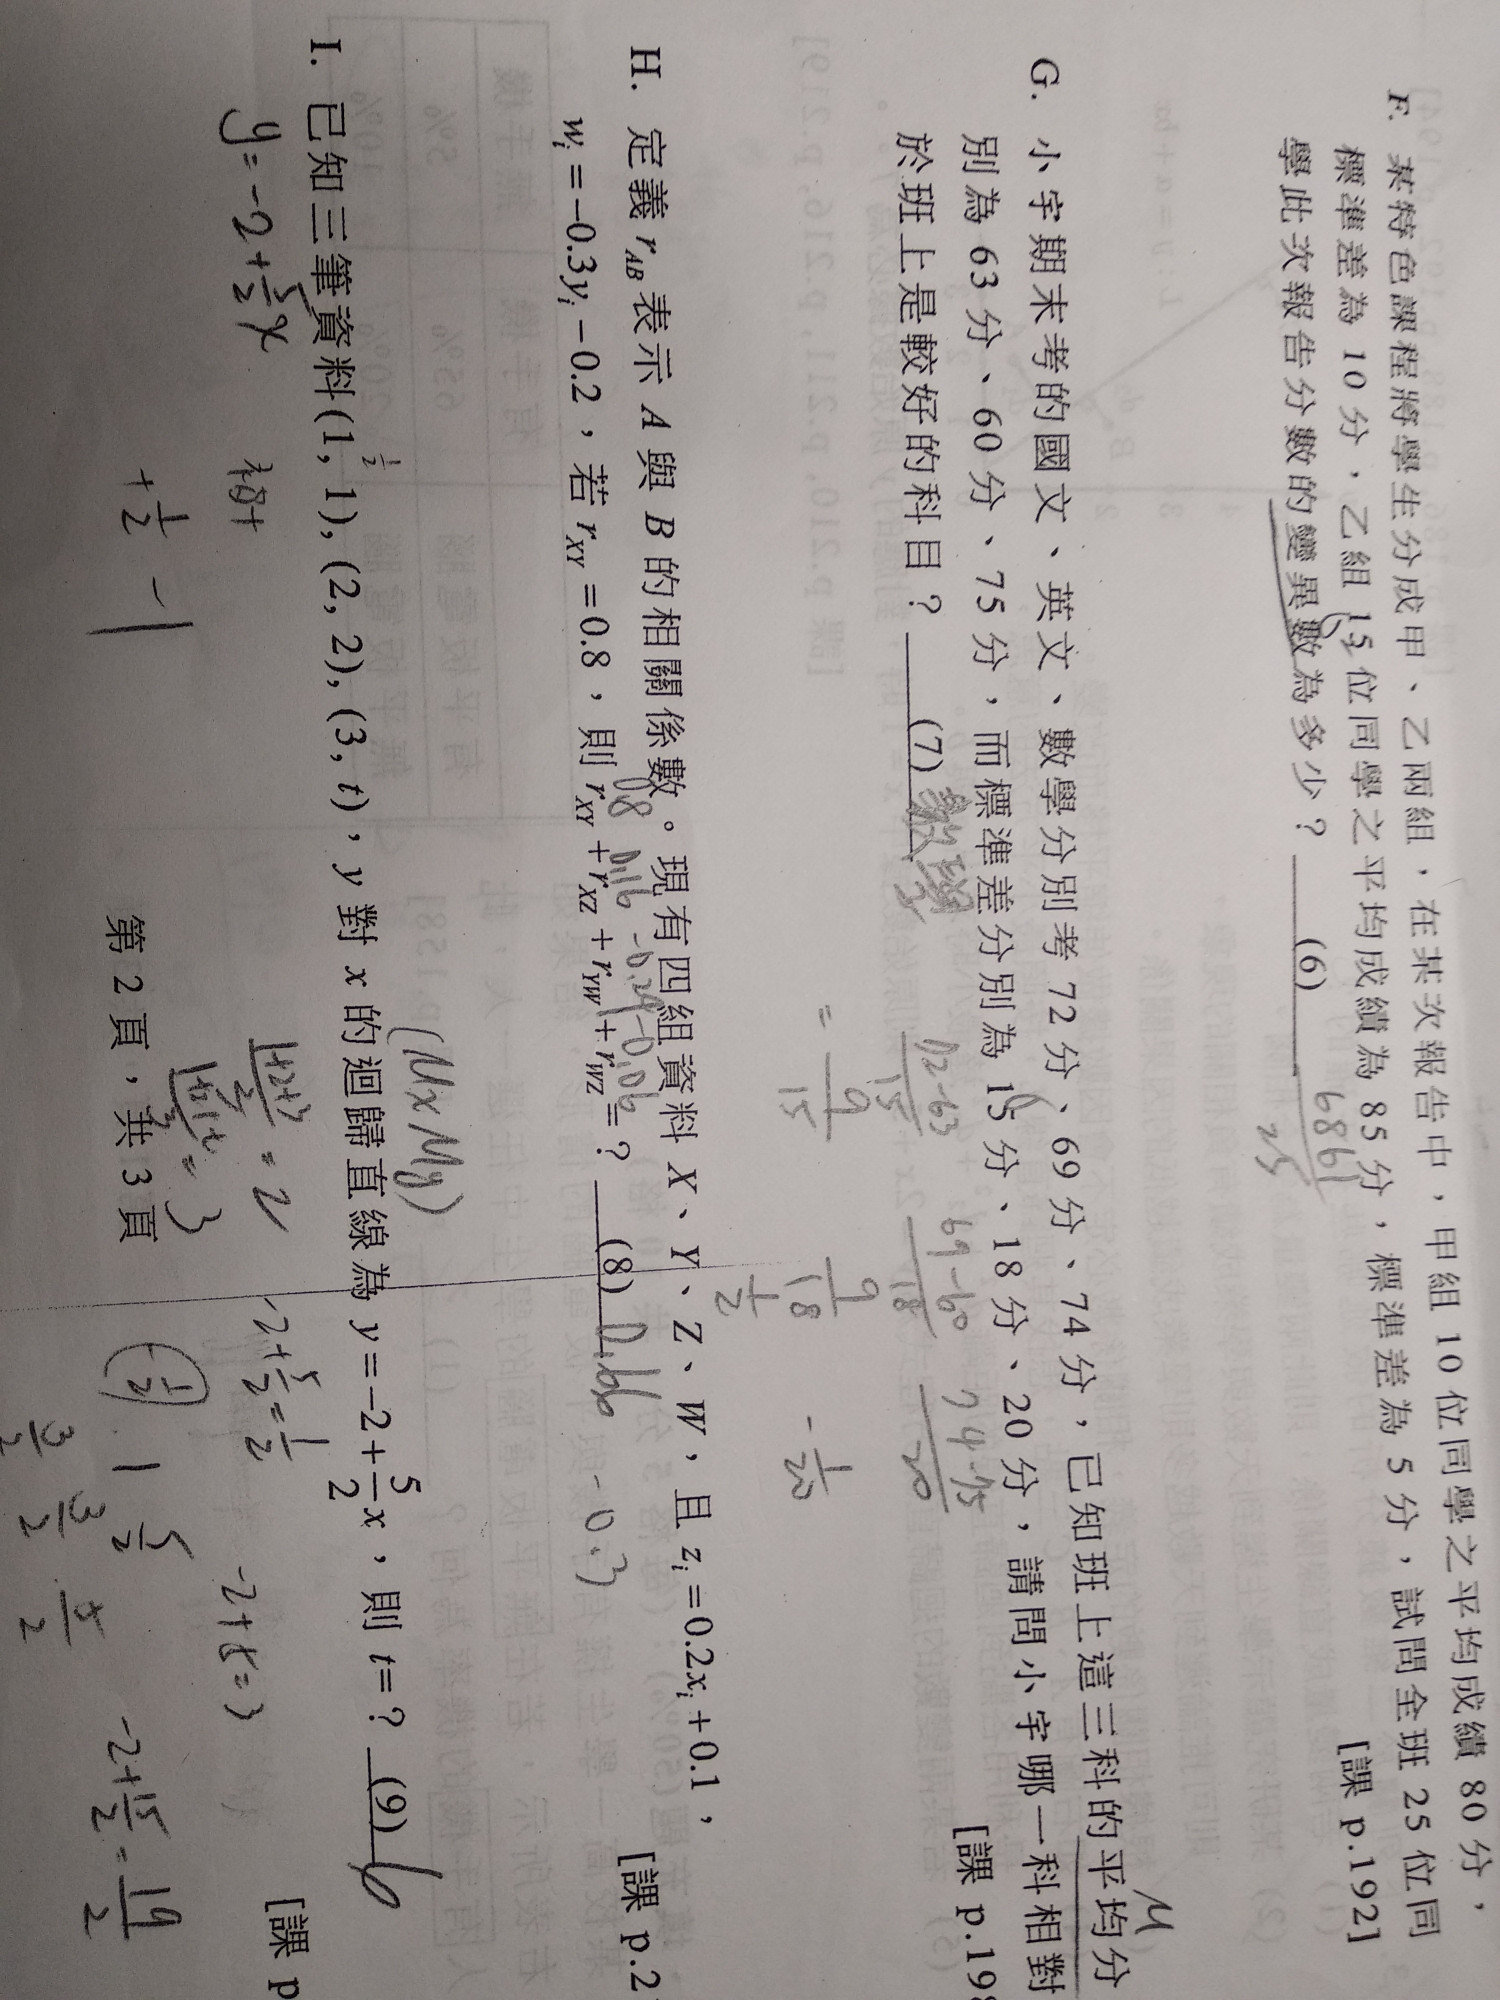 F. 某特色課程將學生分成甲、乙兩組，在某次報告中，甲組 10 位同學之平均成績 80 分，
標準差為 10 分，乙組 15 位同學之平均成績為 85 分，標準差為 5 分，試問全班 25 位同
學此次報告分數的變異數為多少？ (6)
[課 p.192]
6861
25
G. 小宇期末考的國文、英文、數學分別考 72 分、69 分、74 分，已知班上這三科的平均分
別為 63 分、60 分、75 分，而標準差分別為 15 分、18 分、20 分，請問小宇哪一科相對
於班上是較好的科目？ (7)
[課 p.19
72-63
15
69-60
18
74-75
20
= 9/15
9/18
1/2
-1/20
H. 定義 r_AB 表示 A 與 B 的相關係數。現有四組資料 X、Y、Z、W，且 z_i=0.2x_i+0.1，
w_i=-0.3y_i-0.2，若 r_XY=0.8，則 r_XY+r_XZ+r_YW+r_WZ=？ (8)
[課 p.2
0.8 0.16 -0.24 -0.06
0.66
-0.3
I. 已知三筆資料(1, 1), (2, 2), (3, t)，y 對 x 的迴歸直線為 y=-2+5/2x，則 t=？ (9) 6
[課 p
(Mx My)
y=-2+5/2x
1+2+3/3 = 2
1+2+t/3 = 3
-2+5/2=1/2
-2+5=3
-2+15/2=19/2
第 2 頁，共 3 頁